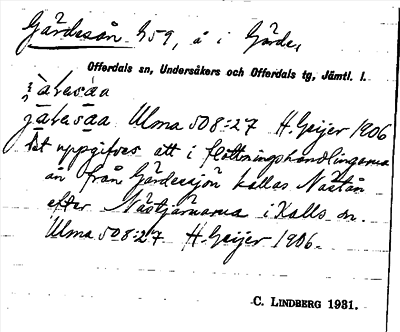 Gärdesån G59, å i Gärde,
Offerdals sn, Undersåkers och Offerdals tg, Jämtl. l.
jàʹlasàa
jälasàa Ulma 508:27 H. Geijer 1906
Det uppgifves att i flottningshandlingarna
ån från Gärdessjön kallas Nästån
efter Nästjärnarna i Kalls sn.
Ulma 508:27 H. Geijer 1906.
C. LINDBERG 1931.